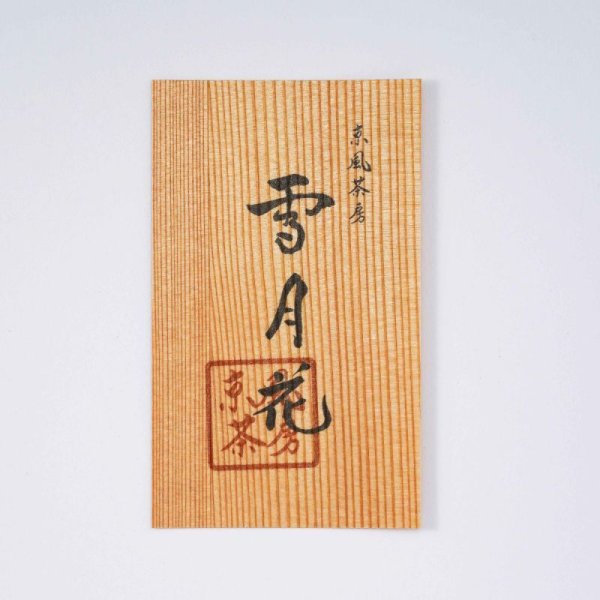 京風茶房
雪月花
京風
茶房